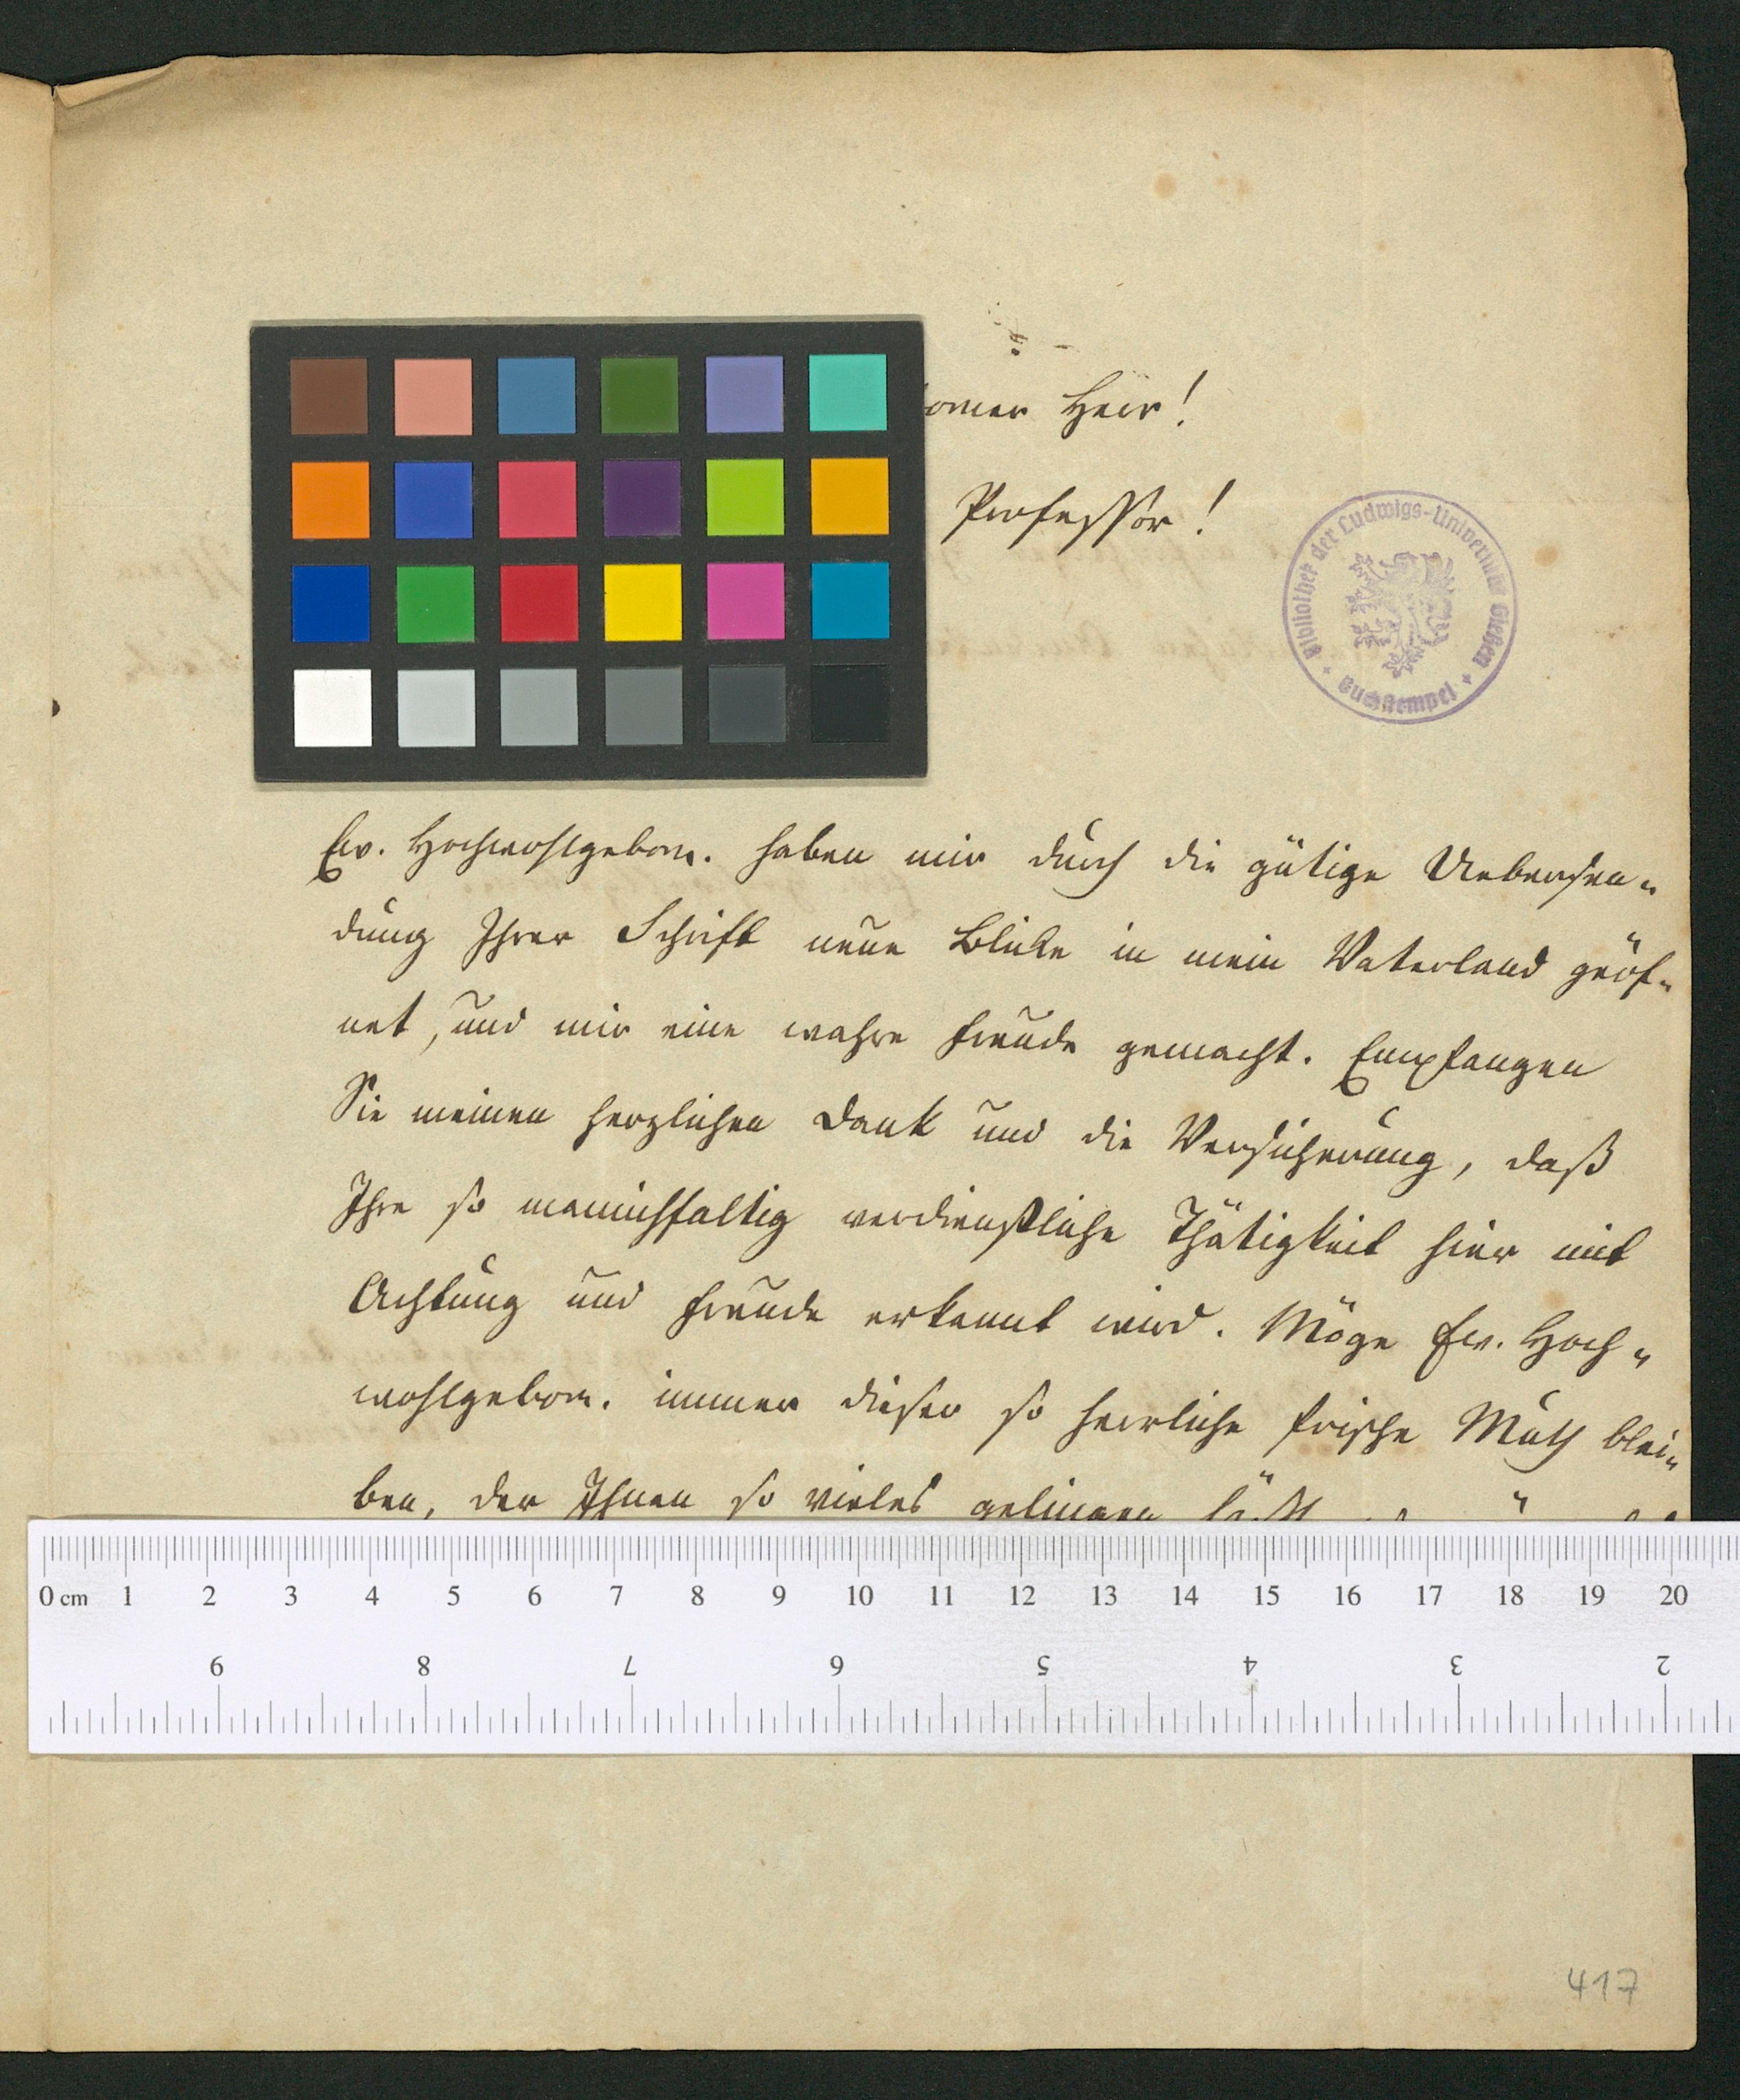 Herr!
Professor!
Bibliothek der Ludwigs-Universität Gießen
Buchstempel
Ew. Hochwohlgebor. haben mir durch die gütige Uebersen-
dung Ihrer Schrift neue Blicke in mein Vaterland geöf-
net, und mir eine wahre Freude gemacht. Empfangen
Sie meinen herzlichen Dank und die Versicherung, daß
Ihre so mannichfaltig verdienstliche Thätigkeit hier mit
Achtung und Freude erkannt wird. Möge Ew. Hoch-
wohlgebor. immer dieser so herrliche frische Muth blei-
ben, der Ihnen so vieles gelingen läßt
0 cm 1 2 3 4 5 6 7 8 9 10 11 12 13 14 15 16 17 18 19 20
9 8 7 6 5 4 3 2
417